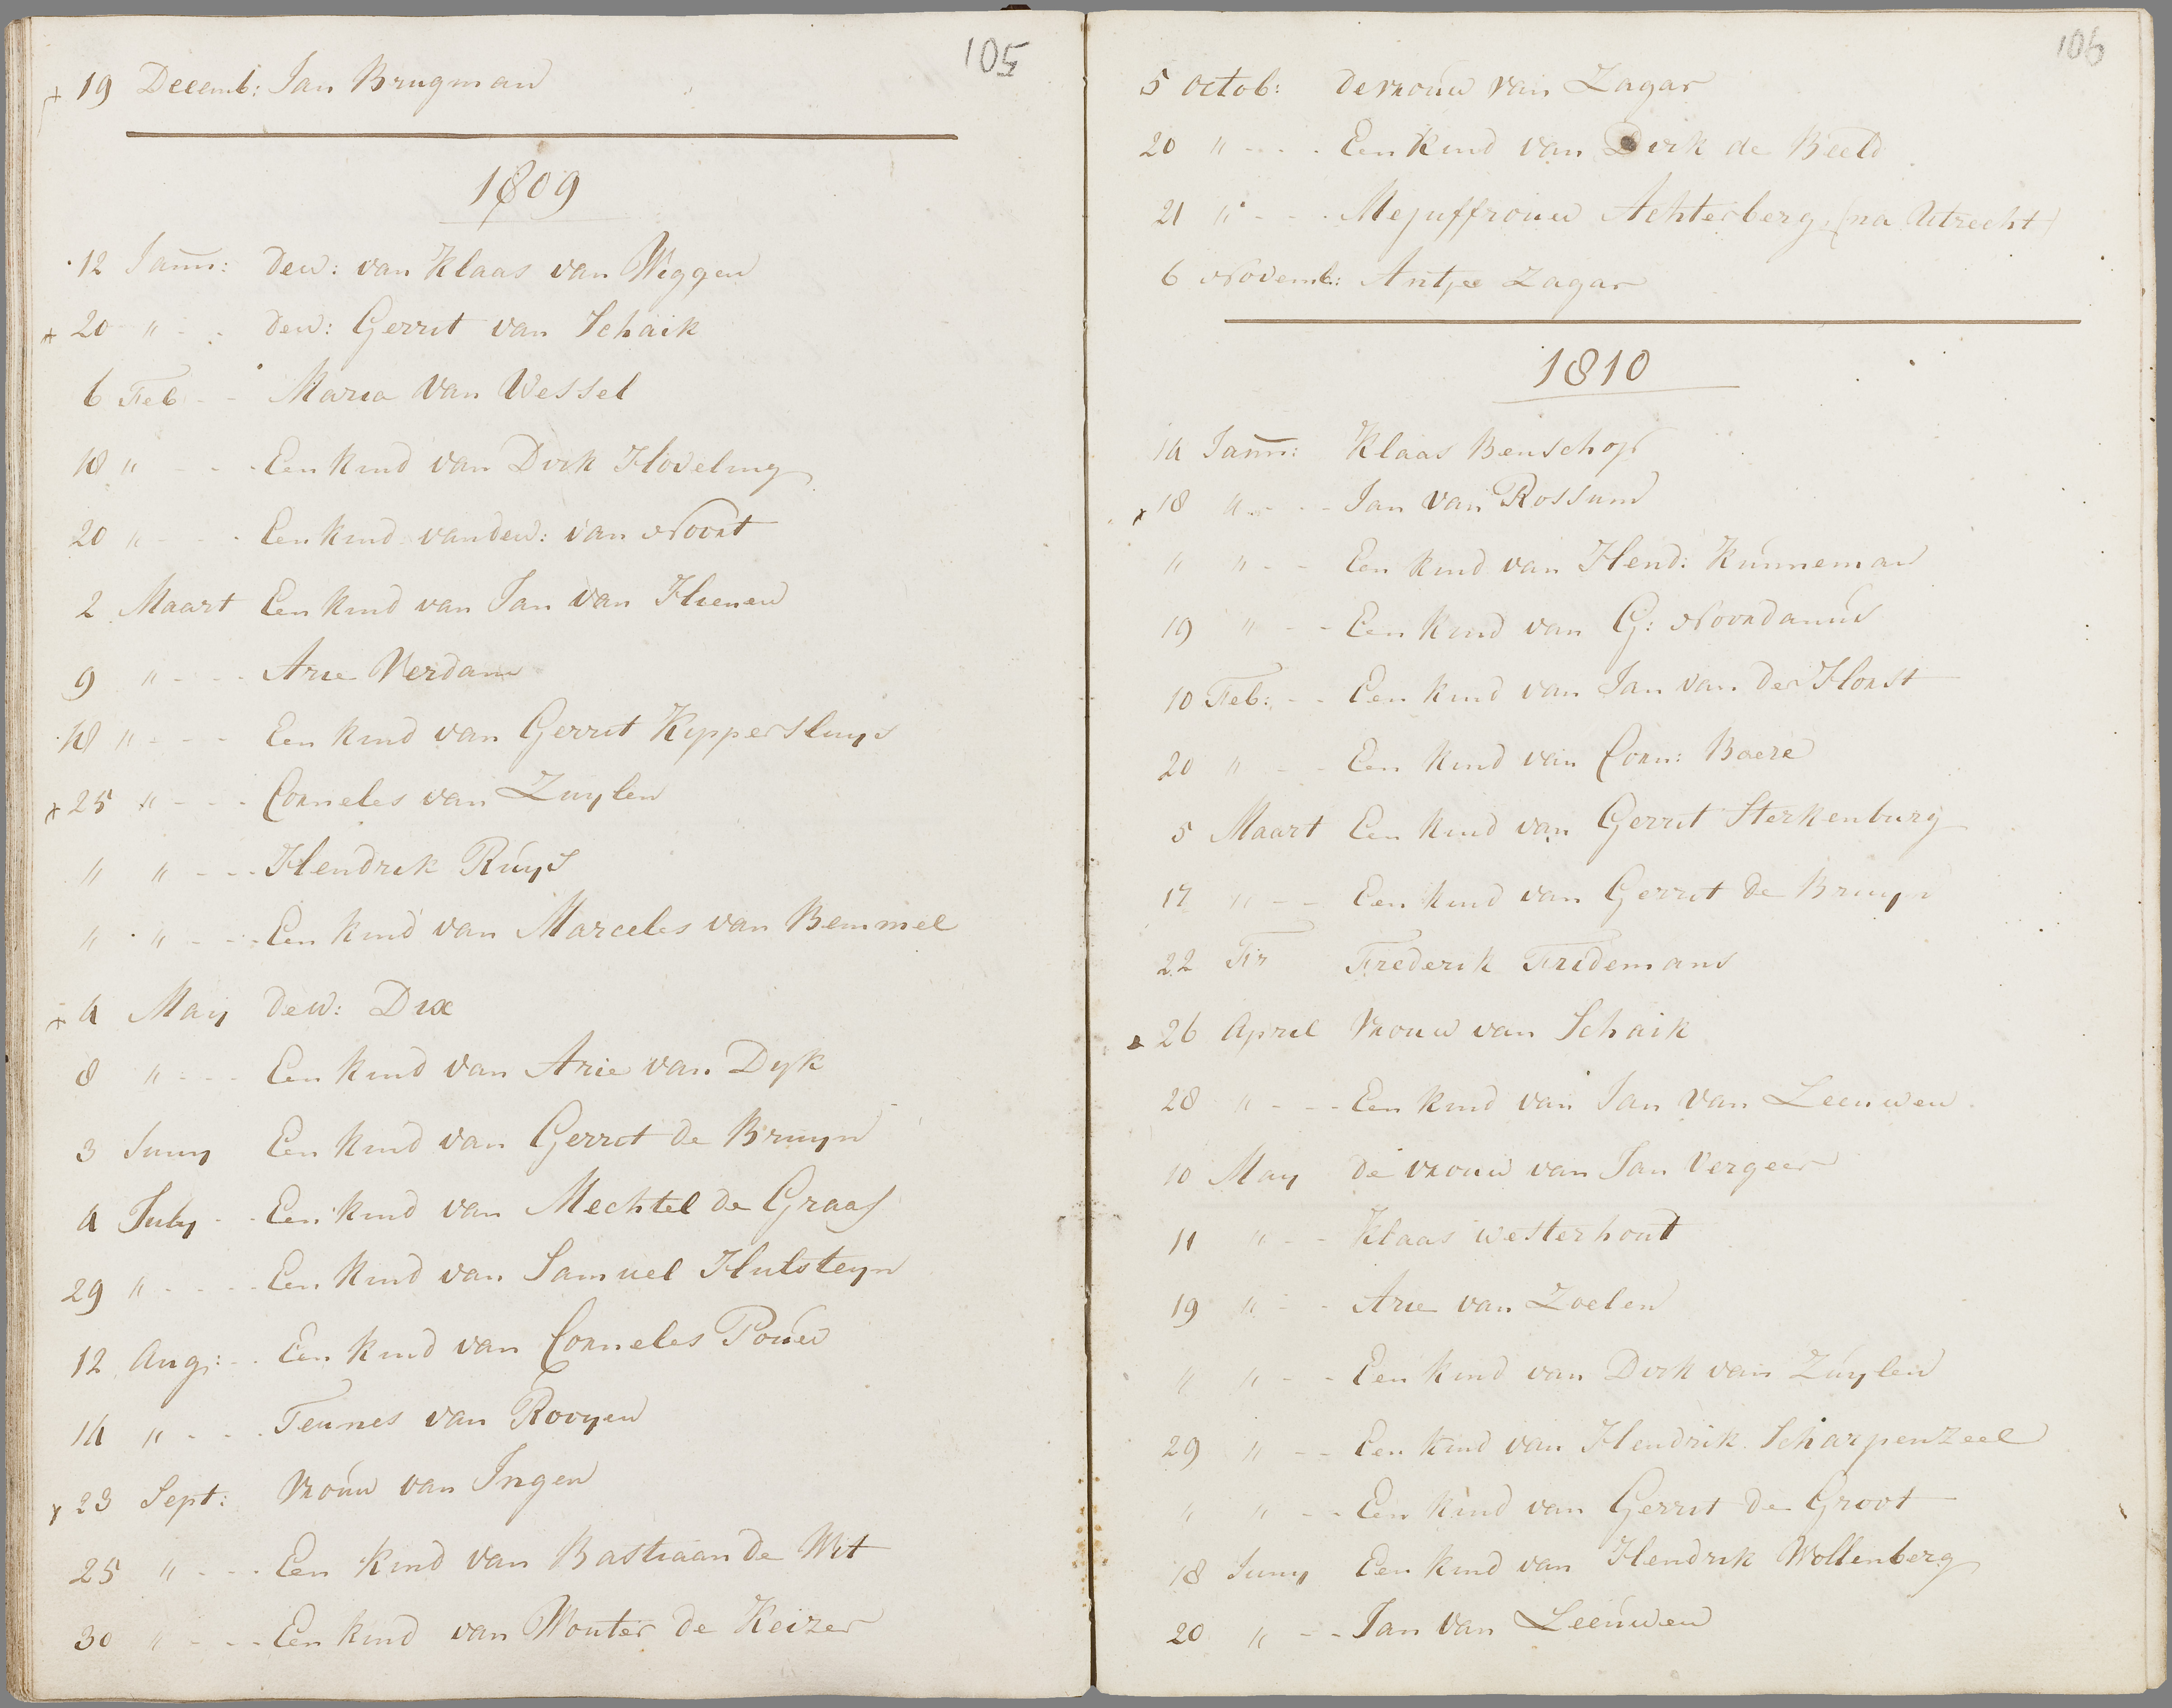 105
+ 19 Decemb: Jan Brugman
1809
12 Jann: dew: van Klaas van Wiggen
+ 20 " - - dew: Gerrit van Schaik
6 Feb - - Maria van Wessel
18 " - - - Een kind van Dirk Hoveling
20 " - - - Een kind van dew: van Noort
2 Maart Een kind van Jan van Hienen
9 " - - - Arie Verdam
18 " - - - Een kind van Gerrit Kippersluys
+ 25 " - - - Corneles van Zuylen
" " - - - Hendrik Ruys
" " - - - Een kind van Marceles van Bemmel
+ 4 May dew: Dix
8 " - - - Een kind van Arie van Dyk
3 Juny Een kind van Gerrit de Bruyn
4 July - - Een kind van Mechtel de Graaf
29 " - - - - Een kind van Samuel Hulsteyn
12 Aug: - - Een kind van Corneles Pouw
14 " - - - Teunes van Rooyen
+ 23 Sept: Vrouw van Ingen
25 " - - - Een kind van Bastiaan de Wit
30 " - - - Een kind van Wouter de Keizer
106
5 Octob: de vrouw van Zagar
20 " - - - Een kind van Dirk de Beeld
21 " - - - Mejuffrouw Achterberg (na Utrecht)
6 Novemb: Antje Zagar
1810
14 Jann: Klaas Benschop
+ 18 " - - - Jan van Rossum
" " - - Een kind van Hend: Kunneman
19 " - - Een kind van G: Noordanus
10 Feb: - - Een kind van Jan van der Horst
20 " - - Een kind van Corn: Baere
5 Maart Een kind van Gerrit Sterkenburg
17 " - - Een kind van Gerrit de Bruyn
22 Fr Frederik Fridemans
+ 26 April Vrouw van Schaik
28 " - - - Een kind van Jan van Leeuwen
10 May de vrouw van Jan Vergeer
11 " - - Klaas westerhout
19 " - - Arie van Zoelen
" " - - Een kind van Dirk van Zuylen
29 " - - Een kind van Hendrik Scharpenzeel
" " - - Een kind van Gerrit de Groot
18 Juny Een kind van Hendrik Wollenberg
20 " - - Jan van Leeuwen